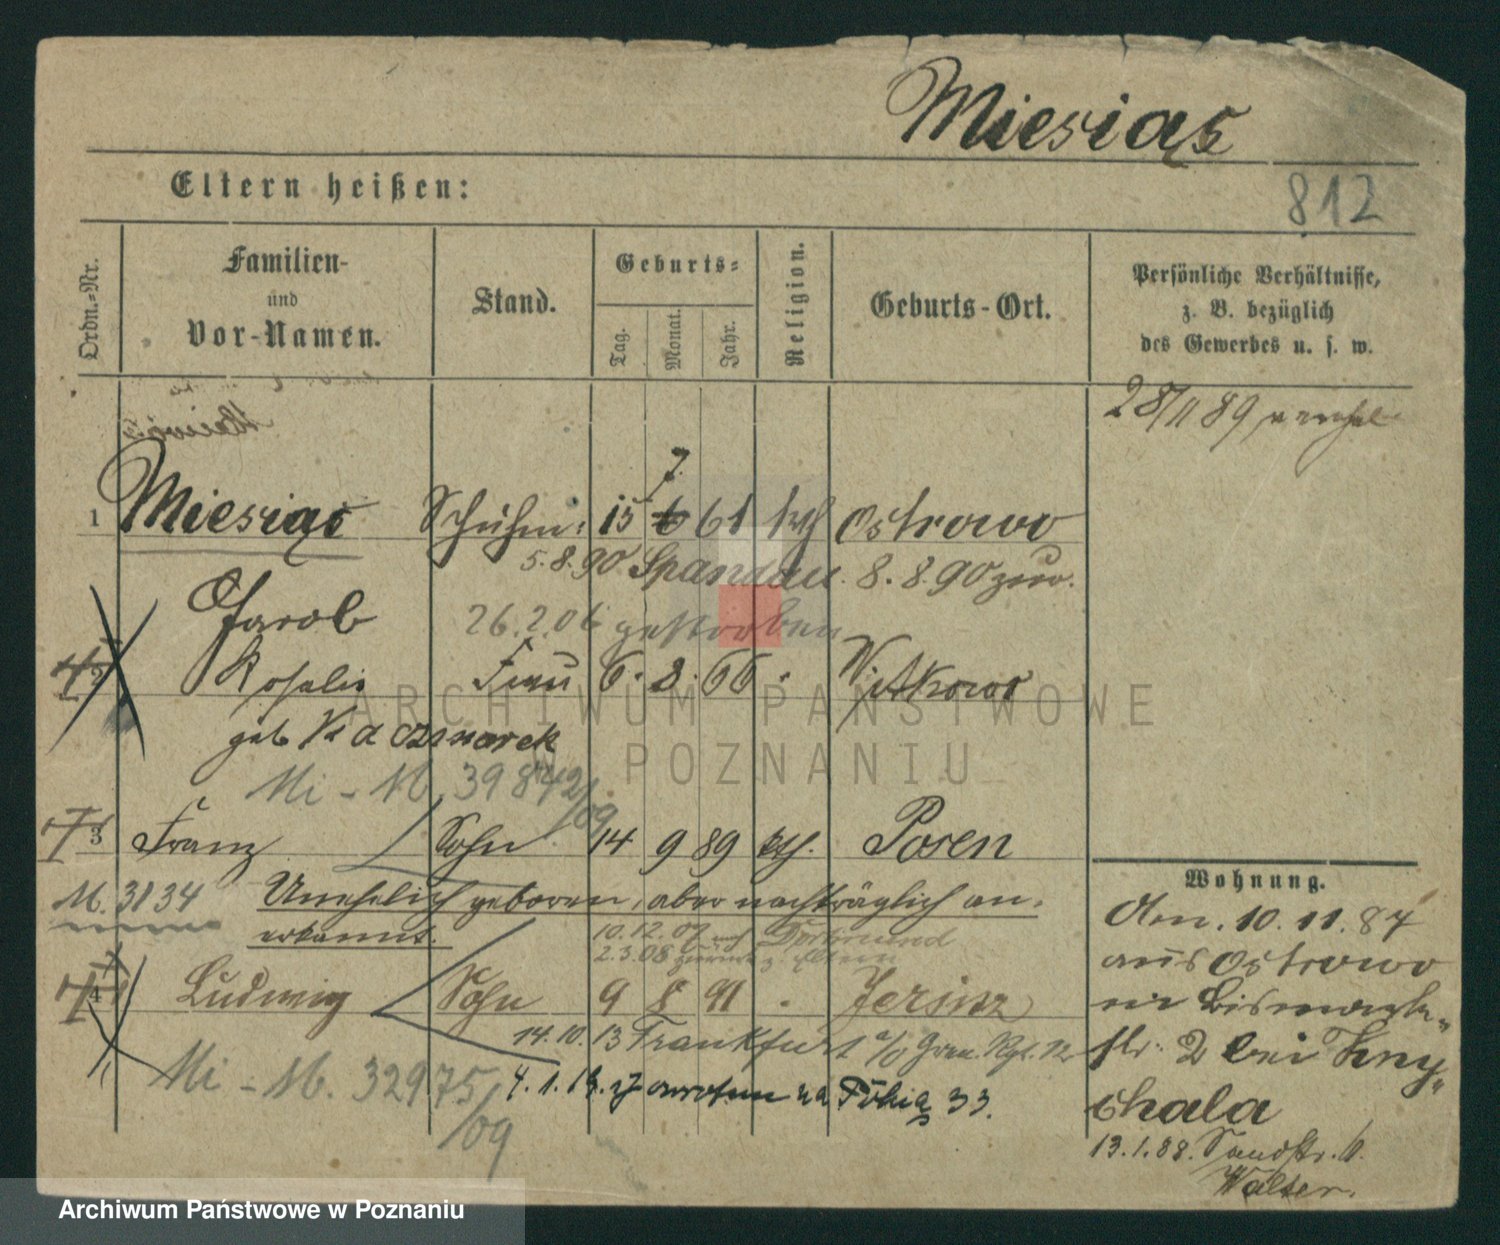 Miesiąc
Eltern heißen:
812
Ordn.=Nr.
Familien-
und
Vor-Namen.
Stand.
Geburts=
Tag.
Monat.
Jahr.
Religion.
Geburts-Ort.
Persönliche Verhältnisse,
z. B. bezüglich
des Gewerbes u. s. w.
28/11 89
7.
1 Miesiąc Schuhm: 15 6 61 kth Ostrowo
5.8.90 Spandau. 8.8.90 zur.
Jacob 26.2.06 gestorben
2 Rosalie Frau 6. 8. 66 Witkowo
geb Kaczmarek
ARCHIWUM PAŃSTWOWE
W POZNANIU
Mi - M. 39842/09
3 Franz Sohn 14 9 89 kth. Posen
M. 3134 Unehelich geboren, aber nachträglich an-
erkannt.
10.12.07 nach Dortmund
2.3.08 zurück z. Eltern
4 Ludwig Sohn 9 8 91 Jersitz
14.10.13 Frankfurt a/O Gren. Rgt. 12
Mi - M. 32975/09
4.1.14. 33.
Wohnung.
Am. 10.11.87
aus Ostrowo
Bismarck-
str. 2 bei
chala
13.1.88. Sandstr.
Walter.
Archiwum Państwowe w Poznaniu